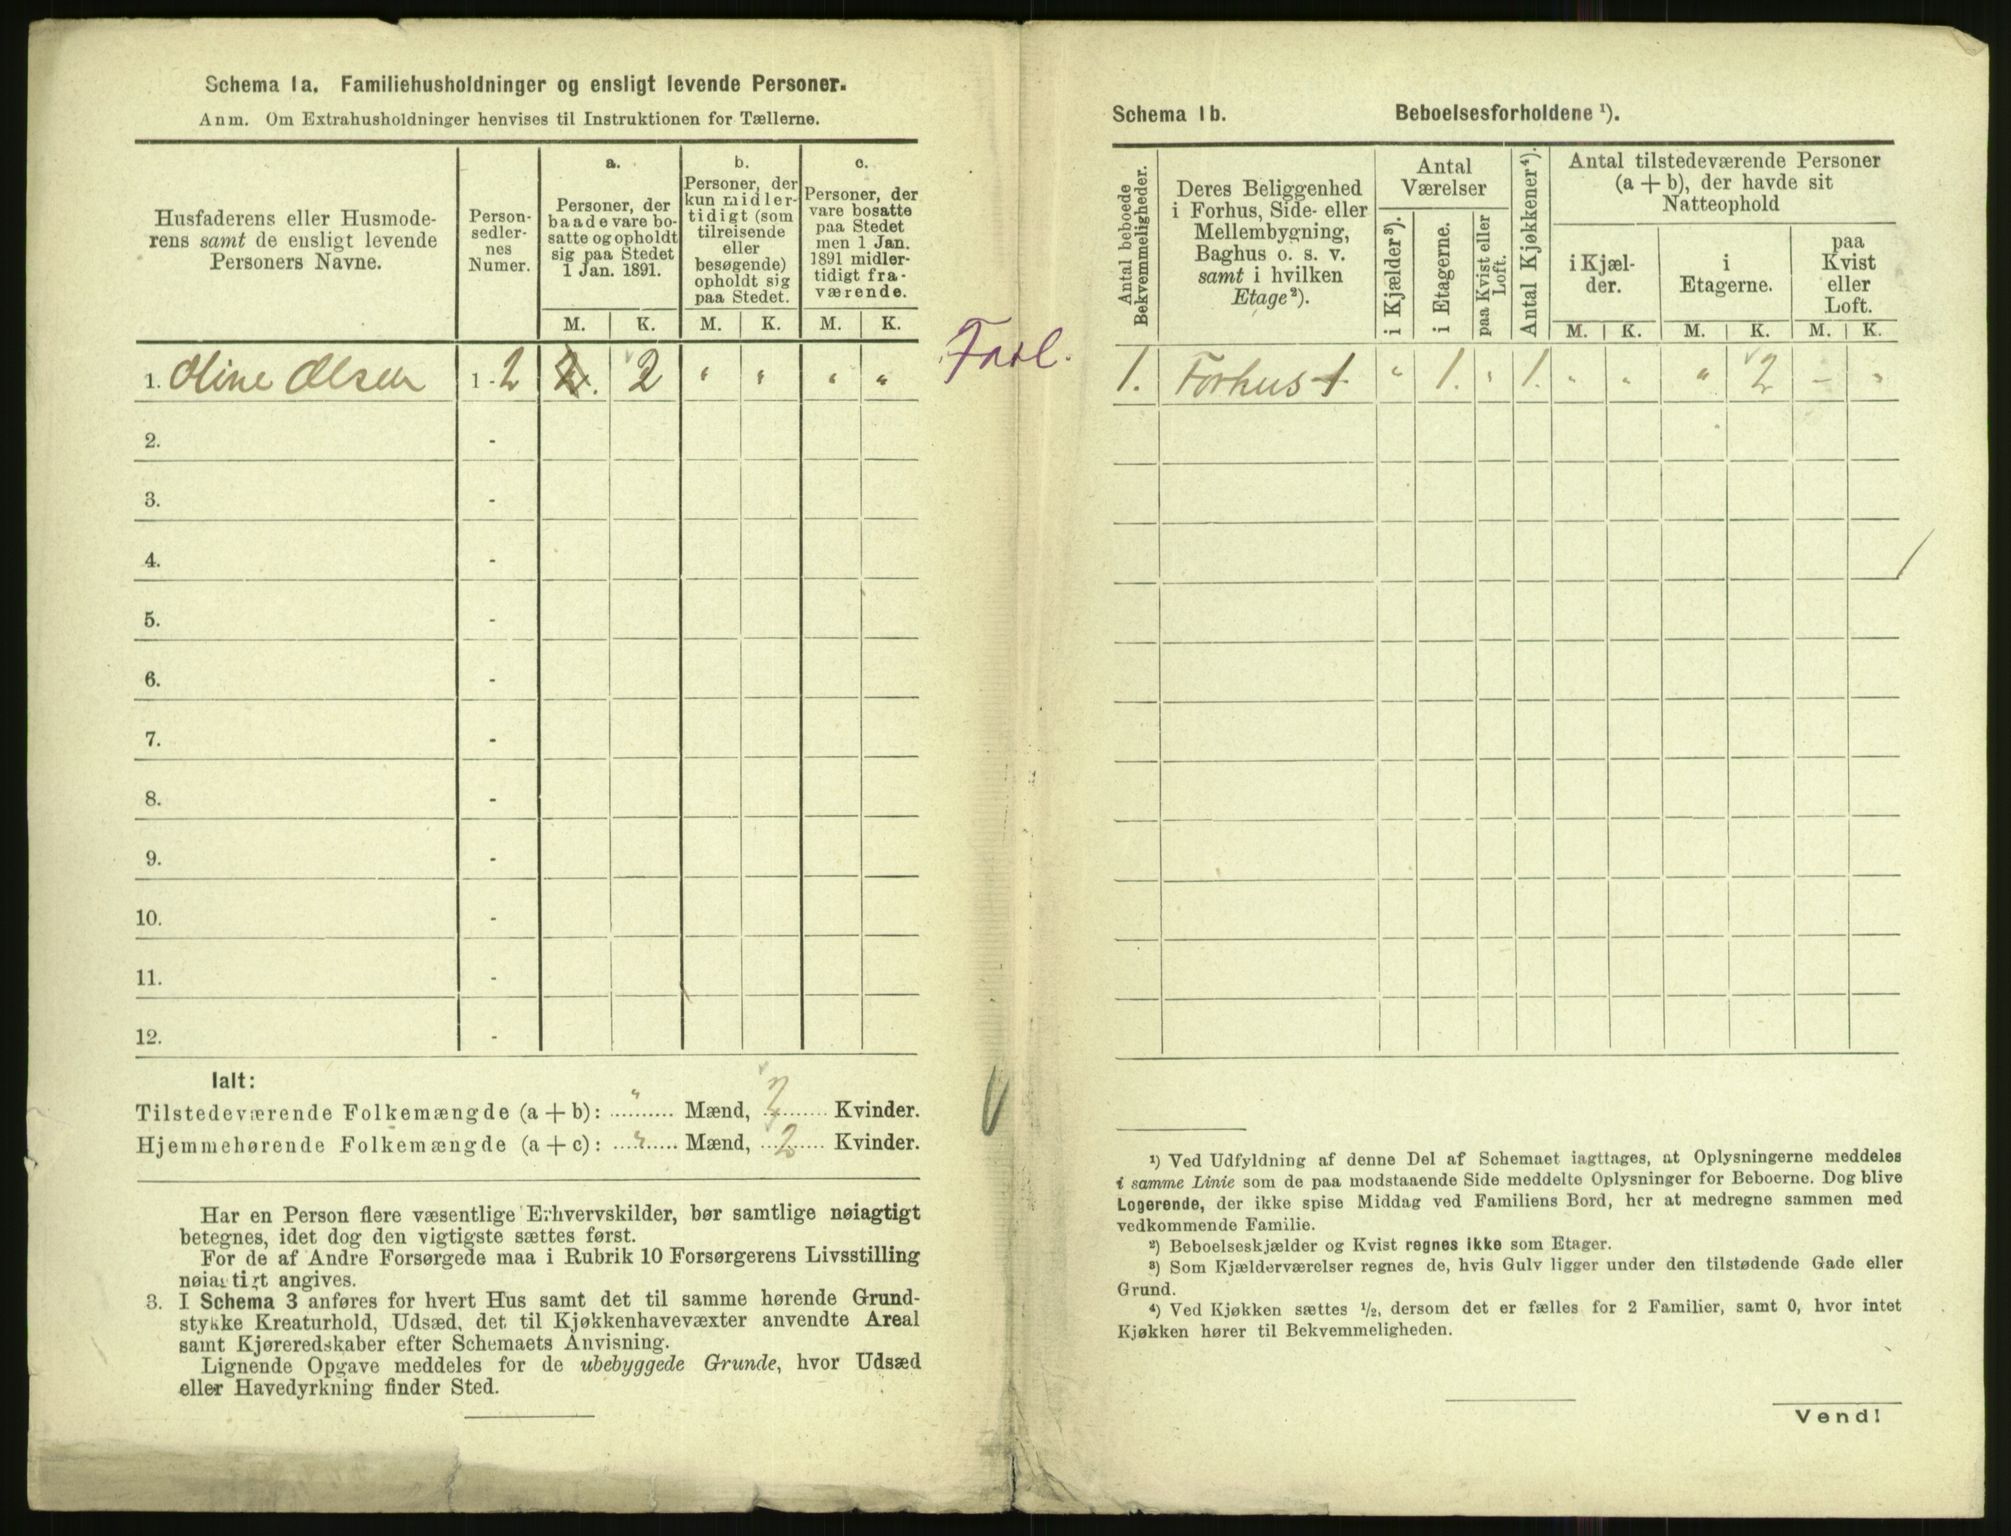 Schema 1a. Familiehusholdninger og ensligt levende Personer.
Anm. Om Extrahusholdninger henvises til Instruktionen for Tællerne.
Husfaderens eller Husmode-
rens samt de ensligt levende
Personers Navne.
Person-
sedler-
nes
Numer.
a.
Personer, der
baade vare bo-
satte og opholdt
sig paa Stedet
1 Jan. 1891.
b.
Personer, der
kun midler-
tidigt (som
tilreisende
eller
besøgende)
opholdt sig
paa Stedet.
c.
Personer, der
vare bosatte
paa Stedet
men 1 Jan.
1891 midler-
tidigt fra-
værende.
M. K. M. K. M. K.
1. Oline Olsen 1 - 2 2. 2 " " " "
2. -
3. -
4. -
5. -
6. -
7. -
8. -
9. -
10. -
11. -
12. -
Ialt:
Tilstedeværende Folkemængde (a + b): " Mænd, 2 Kvinder.
Hjemmehørende Folkemængde (a + c): " Mænd, 2 Kvinder.
Har en Person flere væsentlige Erhvervskilder, bør samtlige nøiagtigt
betegnes, idet dog den vigtigste sættes først.
For de af Andre Forsørgede maa i Rubrik 10 Forsørgerens Livsstilling
nøiagtigt angives.
3. I Schema 3 anføres for hvert Hus samt det til samme hørende Grund-
stykke Kreaturhold, Udsæd, det til Kjøkkenhavevæxter anvendte Areal
samt Kjøreredskaber efter Schemaets Anvisning.
Lignende Opgave meddeles for de ubebyggede Grunde, hvor Udsæd
eller Havedyrkning finder Sted.
Schema 1b. Beboelsesforholdene ¹).
Antal beboede
Bekvemmeligheder.
Deres Beliggenhed
i Forhus, Side- eller
Mellembygning,
Baghus o. s. v.
samt i hvilken
Etage²).
Antal
Værelser
i Kjælder³).
i Etagerne.
paa Kvist eller
Loft.
Antal Kjøkkener⁴).
Antal tilstedeværende Personer
(a + b), der havde sit
Natteophold
i Kjæl-
der.
i
Etagerne.
paa
Kvist
eller
Loft.
M. K. M. K. M. K.
1. Forhus 1 " 1. " 1. " " " 2 - "
¹) Ved Udfyldning af denne Del af Schemaet iagttages, at Oplysningerne meddeles
i samme Linie som de paa modstaaende Side meddelte Oplysninger for Beboerne. Dog blive
Logerende, der ikke spise Middag ved Familiens Bord, her at medregne sammen med
vedkommende Familie.
²) Beboelseskjælder og Kvist regnes ikke som Etager.
³) Som Kjælderværelser regnes de, hvis Gulv ligger under den tilstødende Gade eller
Grund.
⁴) Ved Kjøkken sættes ½, dersom det er fælles for 2 Familier, samt 0, hvor intet
Kjøkken hører til Bekvemmeligheden.
Vend!